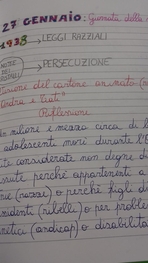 27 GENNAIO: Giornata della
1938 → LEGGI RAZZIALI
NOTTE DEI CRISTALLI → PERSECUZIONE
Visione del cartone animato
Andra e Tati"
Riflessione
milione e mezzo circa di
adolescenti morì durante l'
considerate non degne di
perché appartenenti a
(razze) o perché figli di
(ribelli) o per problemi
(andicap) o disabilità